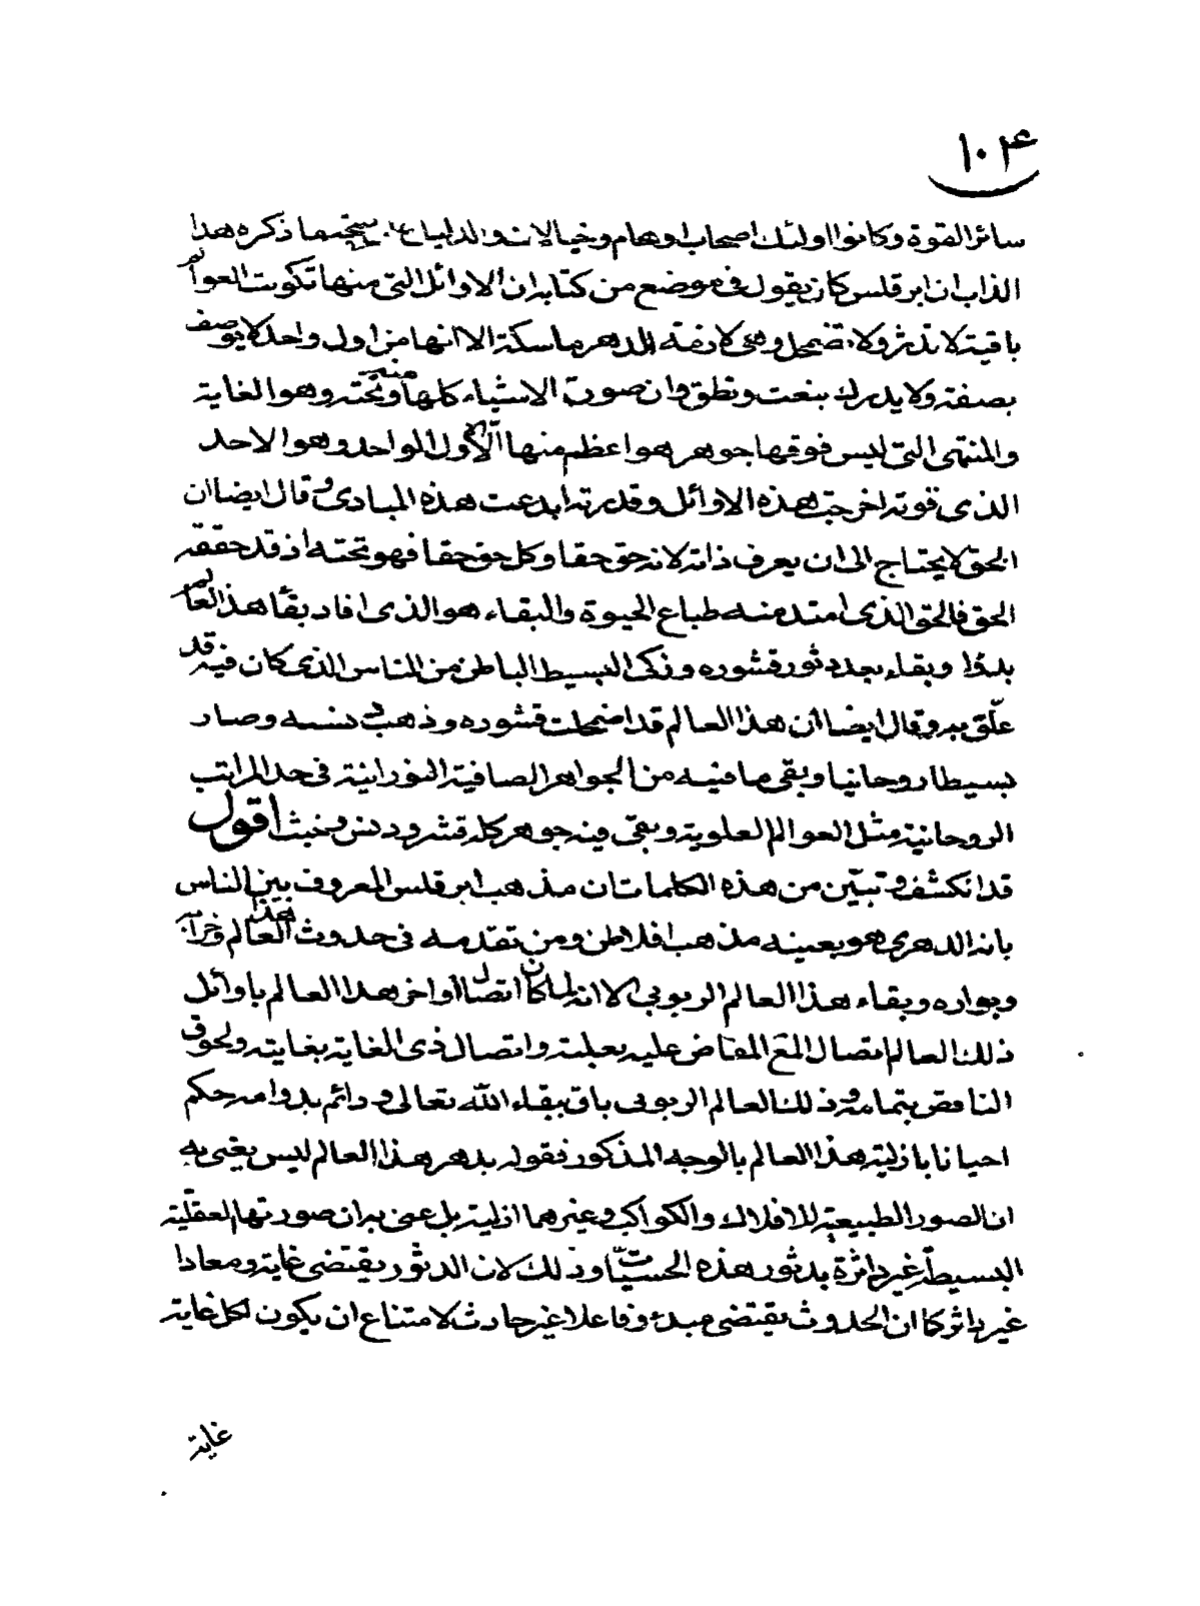 ١٠٤
سائر القوة وكانوا اولئك اصحاب اوهام وخيالات والدليل على صحة ما ذكره هذا
الذاب ان ابرقلس كان يقول فى موضع من كتابه ان الاوائل التى منها تكونت العوالم
باقية لا تدثر ولا تضمحل وهى لازمة الدهر ماسكة الا انها من اول واحد لا يوصف
بصفة ولا يدرك بنعت ونطق وان صورة الاشياء كلها منه وتحته وهو الغاية
والمنتهى التى ليس فوقها جوهر هو اعظم منها الا الاول الواحد وهو الاحد
الذى قوته اخرجت هذه الاوائل وقدرته ابدعت هذه المبادى وقال ايضا ان
الحق لا يحتاج الى ان يعرف ذاته لانه حق حقا وكل حق حقا فهو تحته اذ قد حققه
الحق فالحق الذى امتد منه طباع الحيوة والبقاء هو الذى افاد بقاء هذا العالم
بدؤا وبقاء بعد دثور قشوره وزكى البسيط الباطن من الناس الذى كان فيه قد
علّق به وقال ايضا ان هذا العالم قد اضمحلت قشوره وذهب دنسه وصار
بسيطا روحانيا وبقى ما فيه من الجواهر الصافية النورانية فى حد المراتب
الروحانية مثل العوالم العلوية وبقى فيه جوهر كله قشر ودنس وخبث اقول
قد انكشف وتبيّن من هذه الكلمات ان مذهب ابرقلس المعروف بين الناس
بانه الدهرى هو بعينه مذهب افلاطن ومن تقدمه فى حدوث هذا العالم وخرابه
وبواره وبقاء هذا العالم الربوبى الا انه لما كان اتصال اواخر هذا العالم باوائل
ذلك العالم اتصال المفاض عليه بعلته واتصال ذى الغاية بغايته ولحوق
الناقص بتمامه وذلك العالم الربوبى باق ببقاء الله تعالى ودائم بدوامه حكم
احيانا بازلية هذا العالم بالوجه المذكور فقوله بدهر هذا العالم ليس يعنى به
ان الصور الطبيعية للافلاك والكواكب وغيرهما ازلية بل عنى به ان صورتها العقلية
البسيطة غير داثرة بدثور هذه الحسيّات وذلك لان الدثور يقتضى غاية ومعادا
غير داثر كما ان الحدوث يقتضى مبدء وفاعلا غير حادث لامتناع ان يكون لكل غاية
غاية